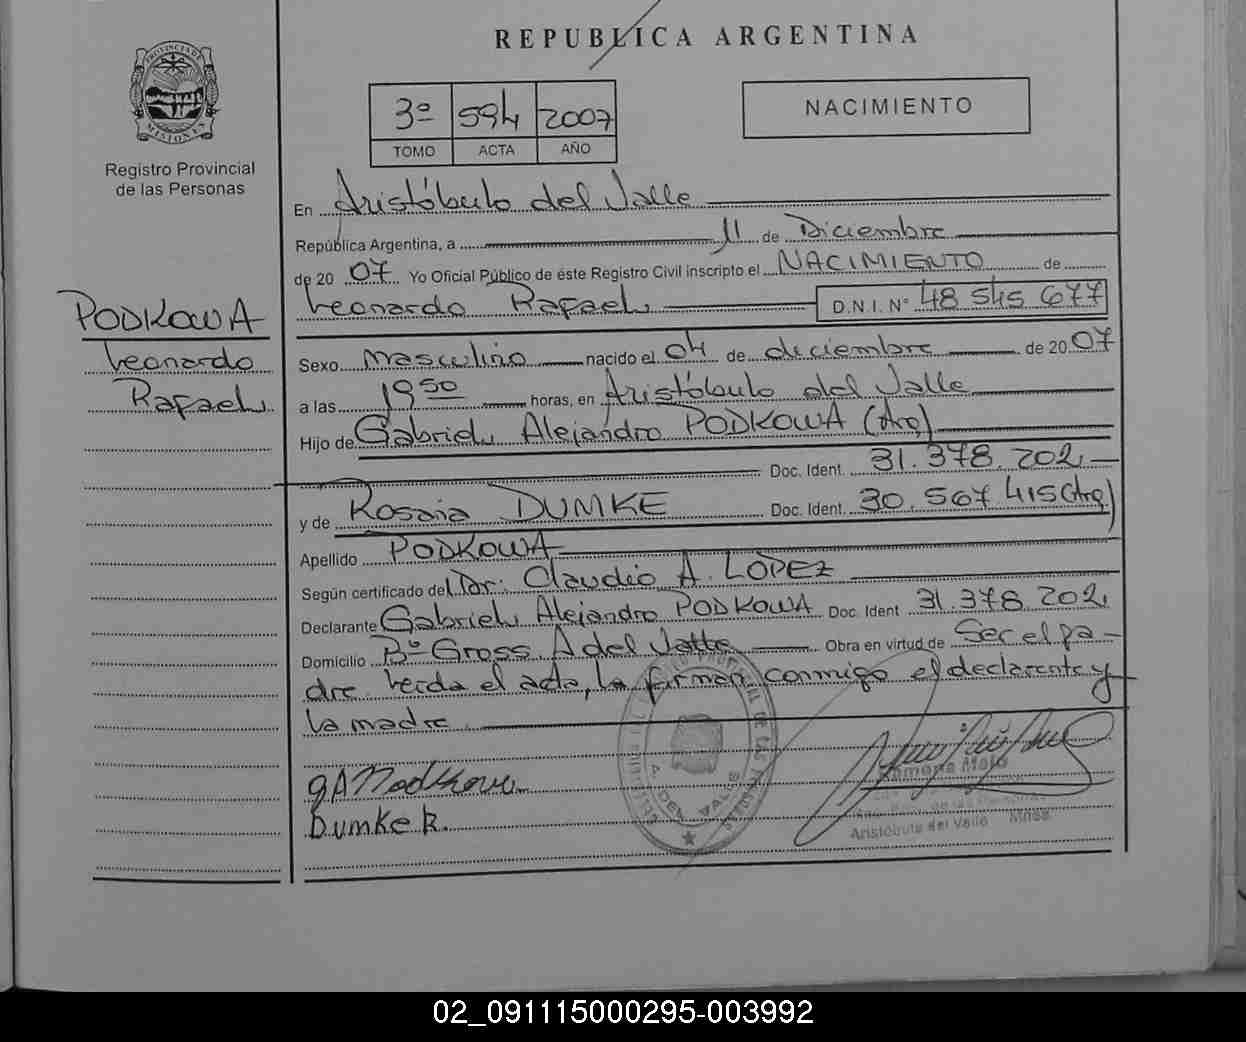 REPUBLICA ARGENTINA
PROVINCIA DE MISIONES
Registro Provincial
de las Personas
3º 594 2007
TOMO ACTA AÑO
NACIMIENTO
En Aristóbulo del Valle
República Argentina, a 11 de Diciembre
de 20 07. Yo Oficial Público de éste Registro Civil inscripto el NACIMIENTO de
Leonardo Rafael D.N.I. Nº 48 545 677
PODKOWA
Leonardo
Rafael
Sexo masculino nacido el 04 de diciembre de 20 07
a las 19 50 horas, en Aristóbulo del Valle
Hijo de Gabriel Alejandro PODKOWA (Arg)
Doc. Ident. 31.378.202
y de Rosaia DUMKE Doc. Ident. 30.567.415 (Arg)
Apellido PODKOWA
Según certificado del Dr. Claudio A. LOPEZ
Declarante Gabriel Alejandro PODKOWA Doc. Ident 31.378.202
Domicilio Bº Gross A del Valle Obra en virtud de Ser el pa-
dre. Leida el acta, la firman conmigo el declarante y
la madre
Dumke R.
Aristóbulo del Valle Mnes.
02_091115000295-003992